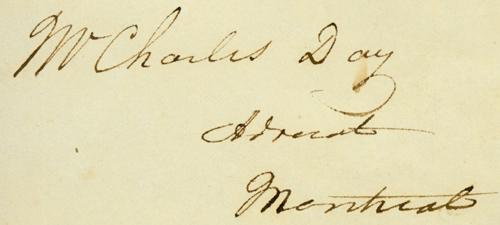 Mr Charles Day
Advocat
Montreal